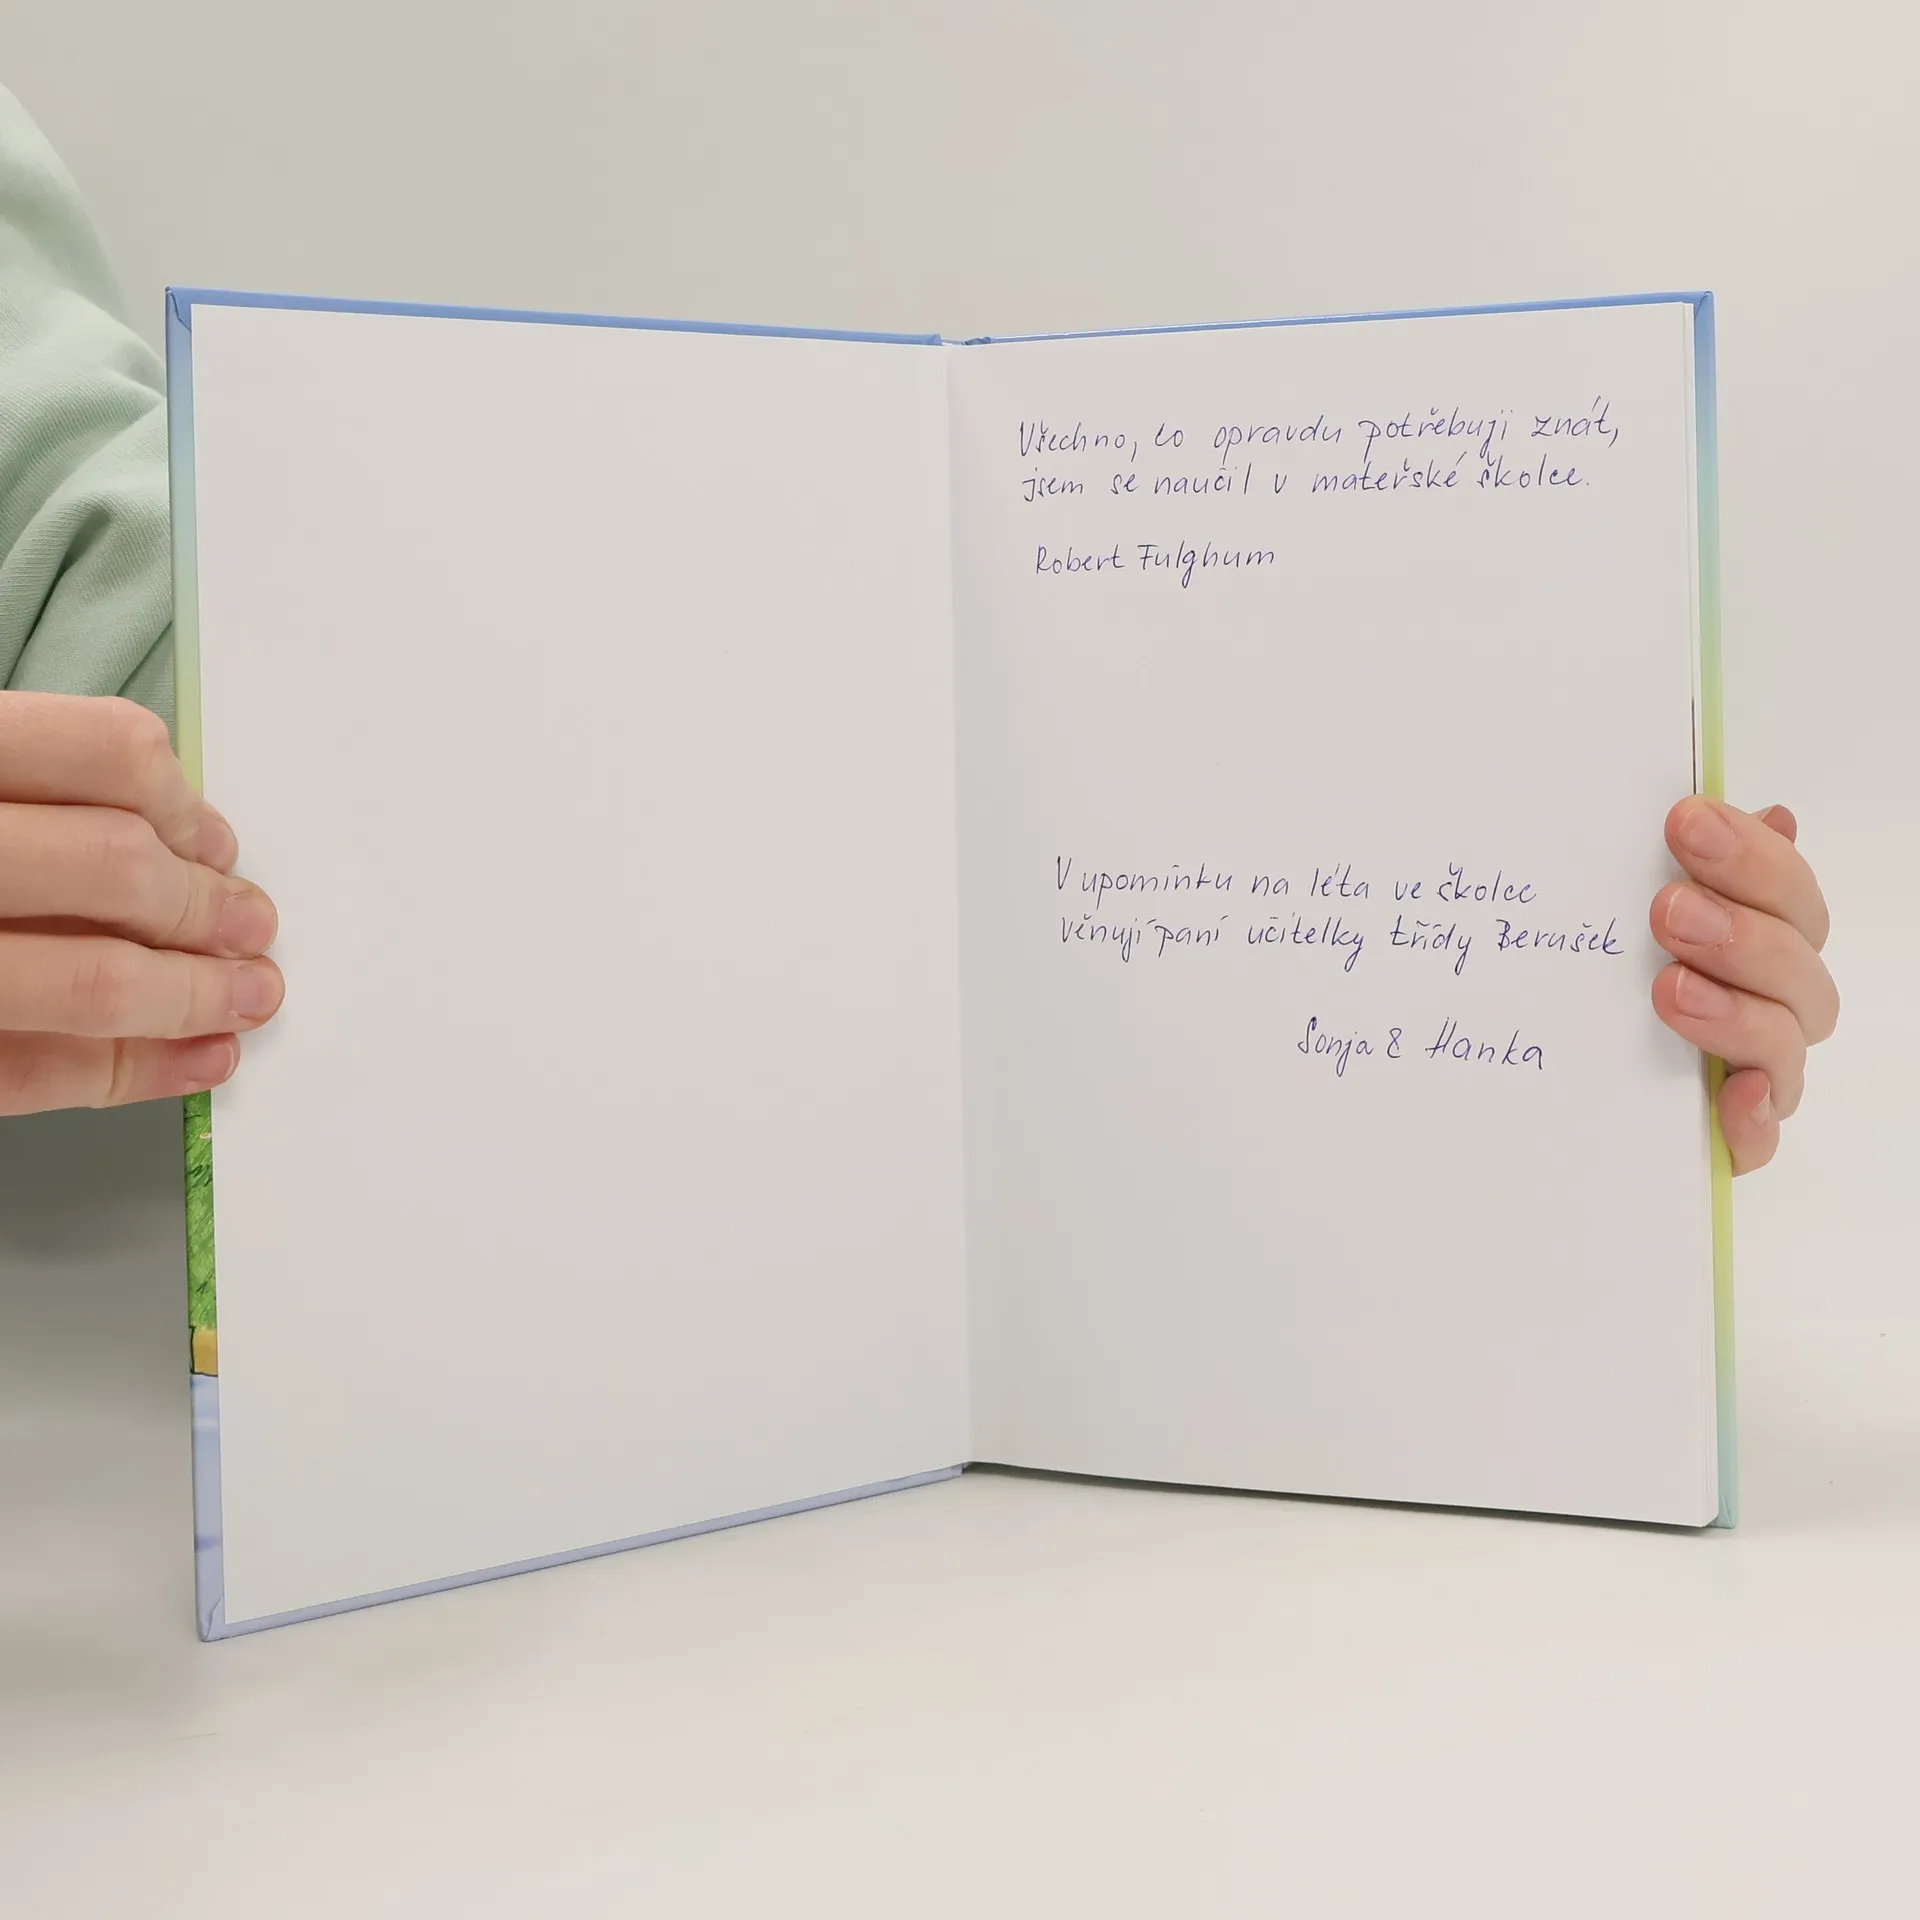 Všechno, co opravdu potřebuji znát,
jsem se naučil v mateřské školce.
Robert Fulghum
V upomínku na léta ve školce
věnují paní učitelky třídy Berušek
Sonja & Hanka